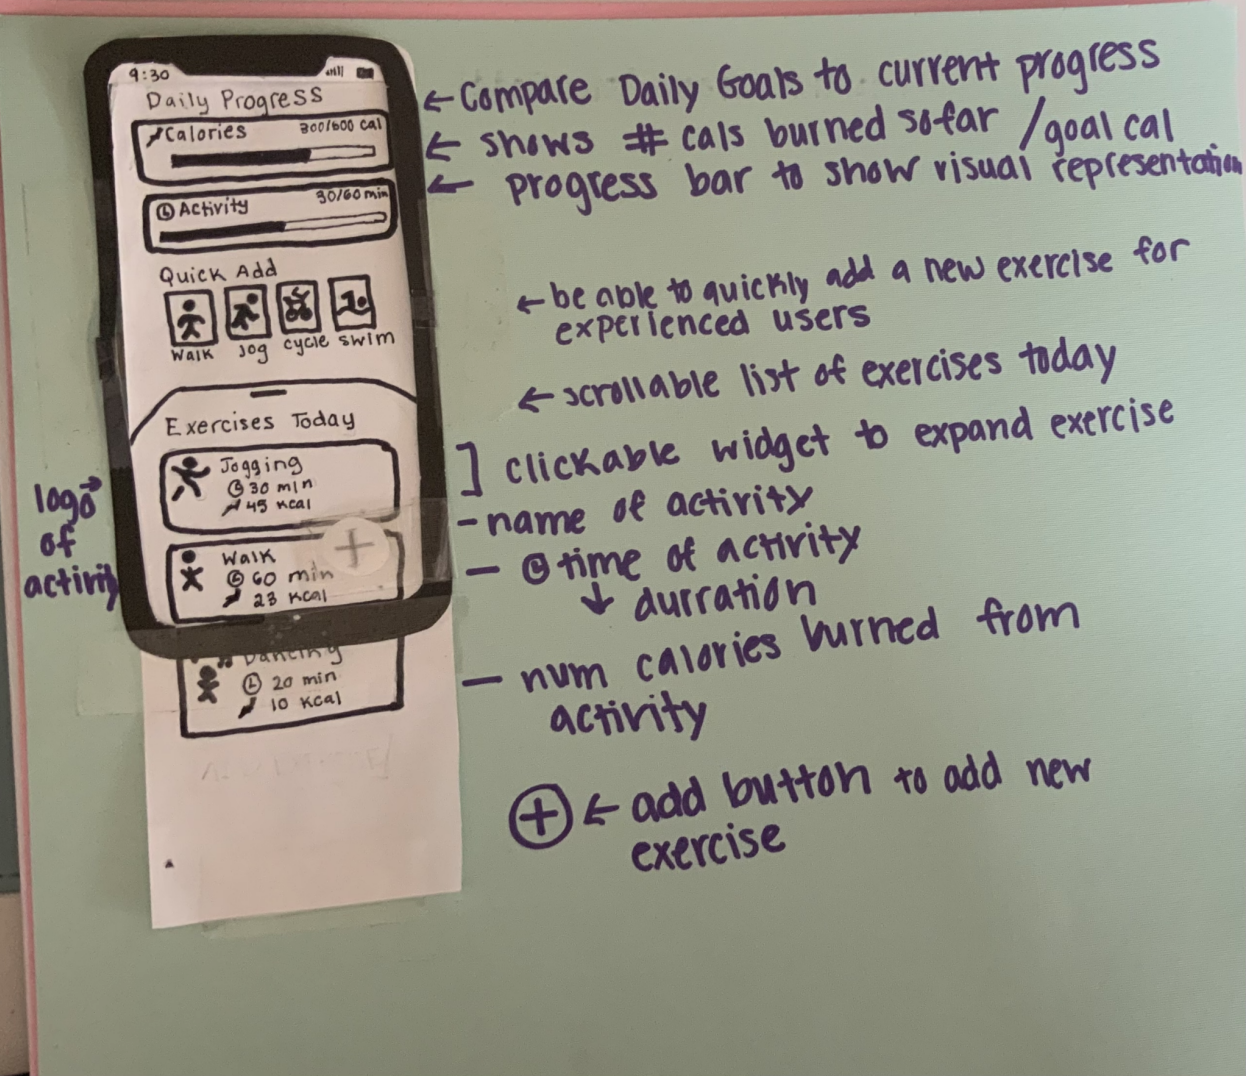 9:30
Daily Progress
Calories 300/500 cal
Activity 30/60 min
Quick Add
Walk Jog cycle swim
Exercises Today
Jogging
30 min
45 Kcal
Walk
60 min
23 Kcal
Dancing
20 min
10 Kcal
logo
of
activity
←Compare Daily Goals to current progress
← shows # cals burned sofar /goal cal
← progress bar to show visual representation
←be able to quickly add a new exercise for
experienced users
←scrollable list of exercises today
] clickable widget to expand exercise
-name of activity
- time of activity
↓ durration
- num calories burned from
activity
+ ← add button to add new
exercise